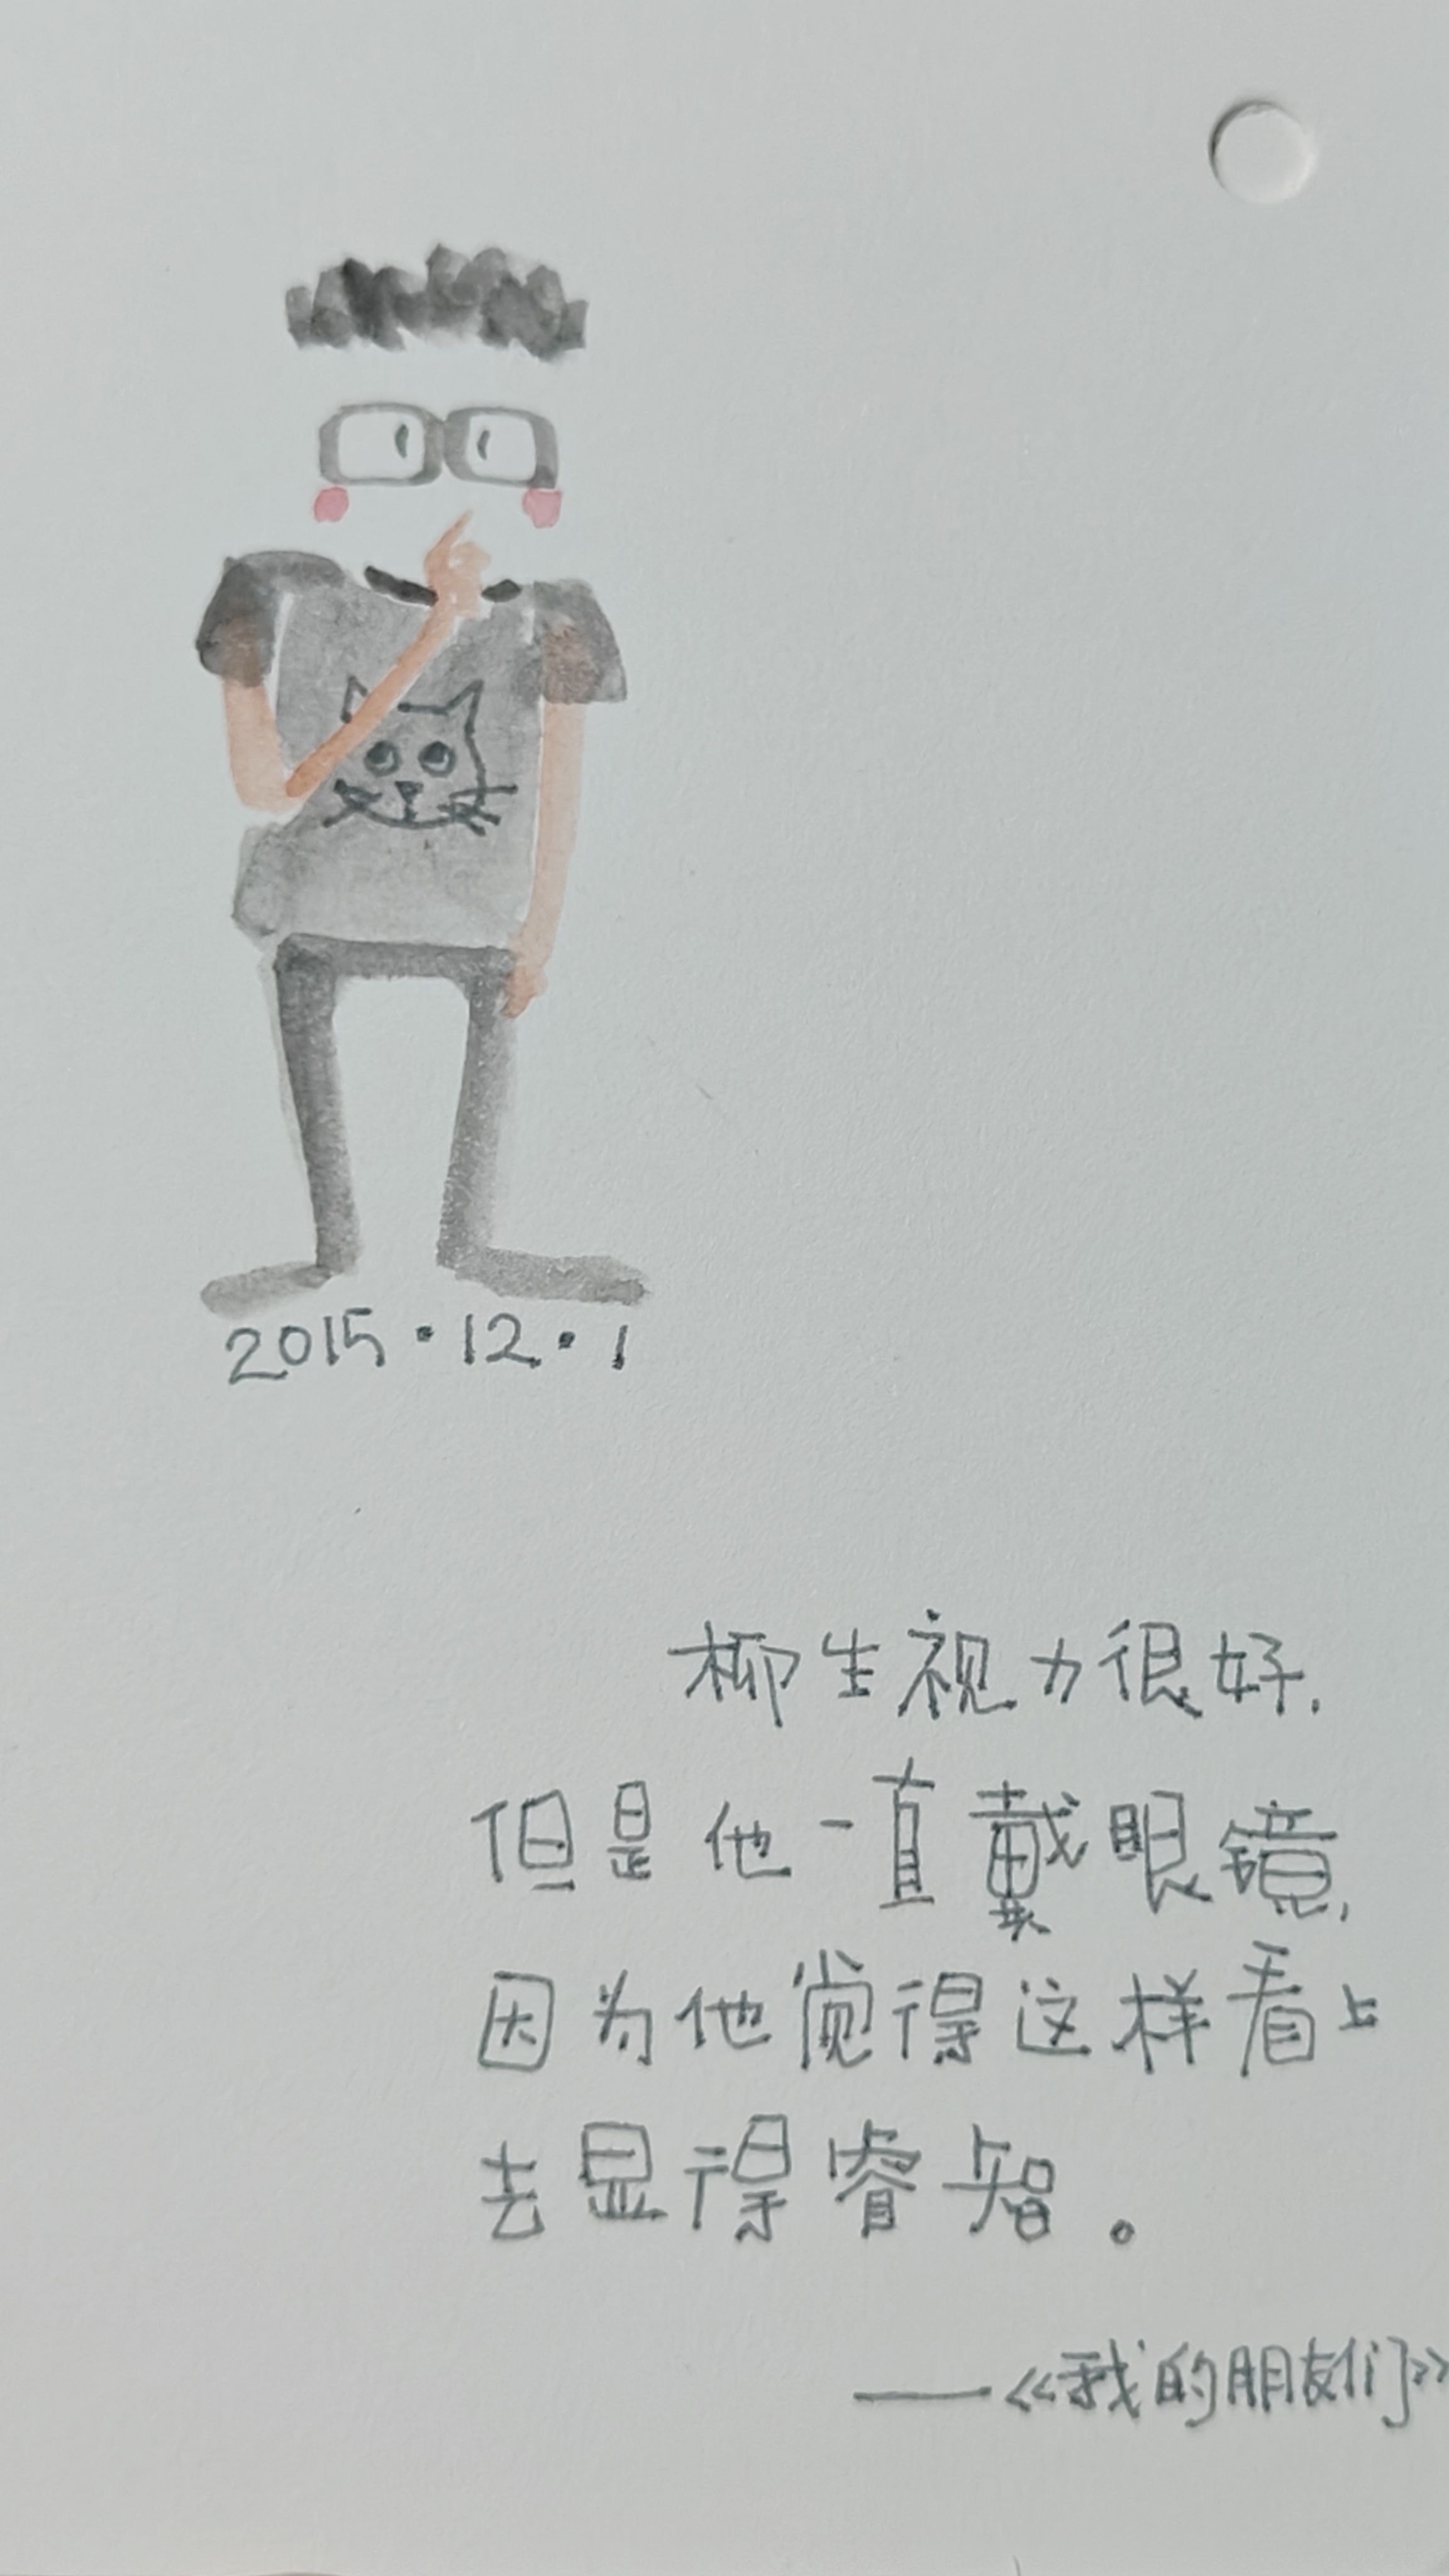 2015·12·1
柳生视力很好,
但是他一直戴眼镜,
因为他觉得这样看上
去显得睿智。
——《我的朋友们》